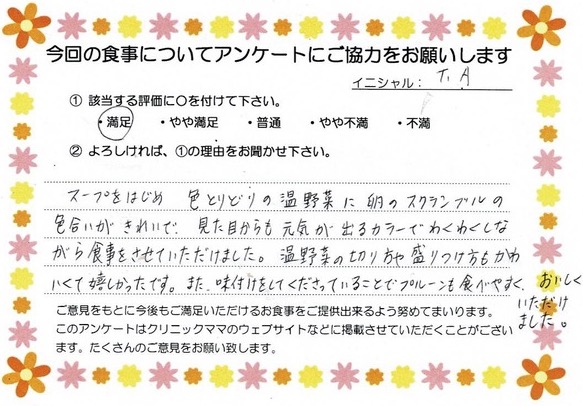 今回の食事についてアンケートにご協力をお願いします
イニシャル： T. A
① 該当する評価に○を付けて下さい。
・満足 ・やや満足 ・普通 ・やや不満 ・不満
② よろしければ、①の理由をお聞かせ下さい。
スープをはじめ 色とりどりの温野菜に卵のスクランブルの
色合いがきれいで、見た目からも元気が出るカラーでわくわくしな
がら食事をさせていただけました。温野菜の切り方や盛りつけ方もかわ
いくて嬉しかったです。また、味付けをしてくださっていることでプルーンも食べやすく、おいしく
いただけ
ました。
ご意見をもとに今後もご満足いただけるお食事をご提供出来るよう努めてまいります。
このアンケートはクリニックママのウェブサイトなどに掲載させていただくことがござい
ます。たくさんのご意見をお願い致します。